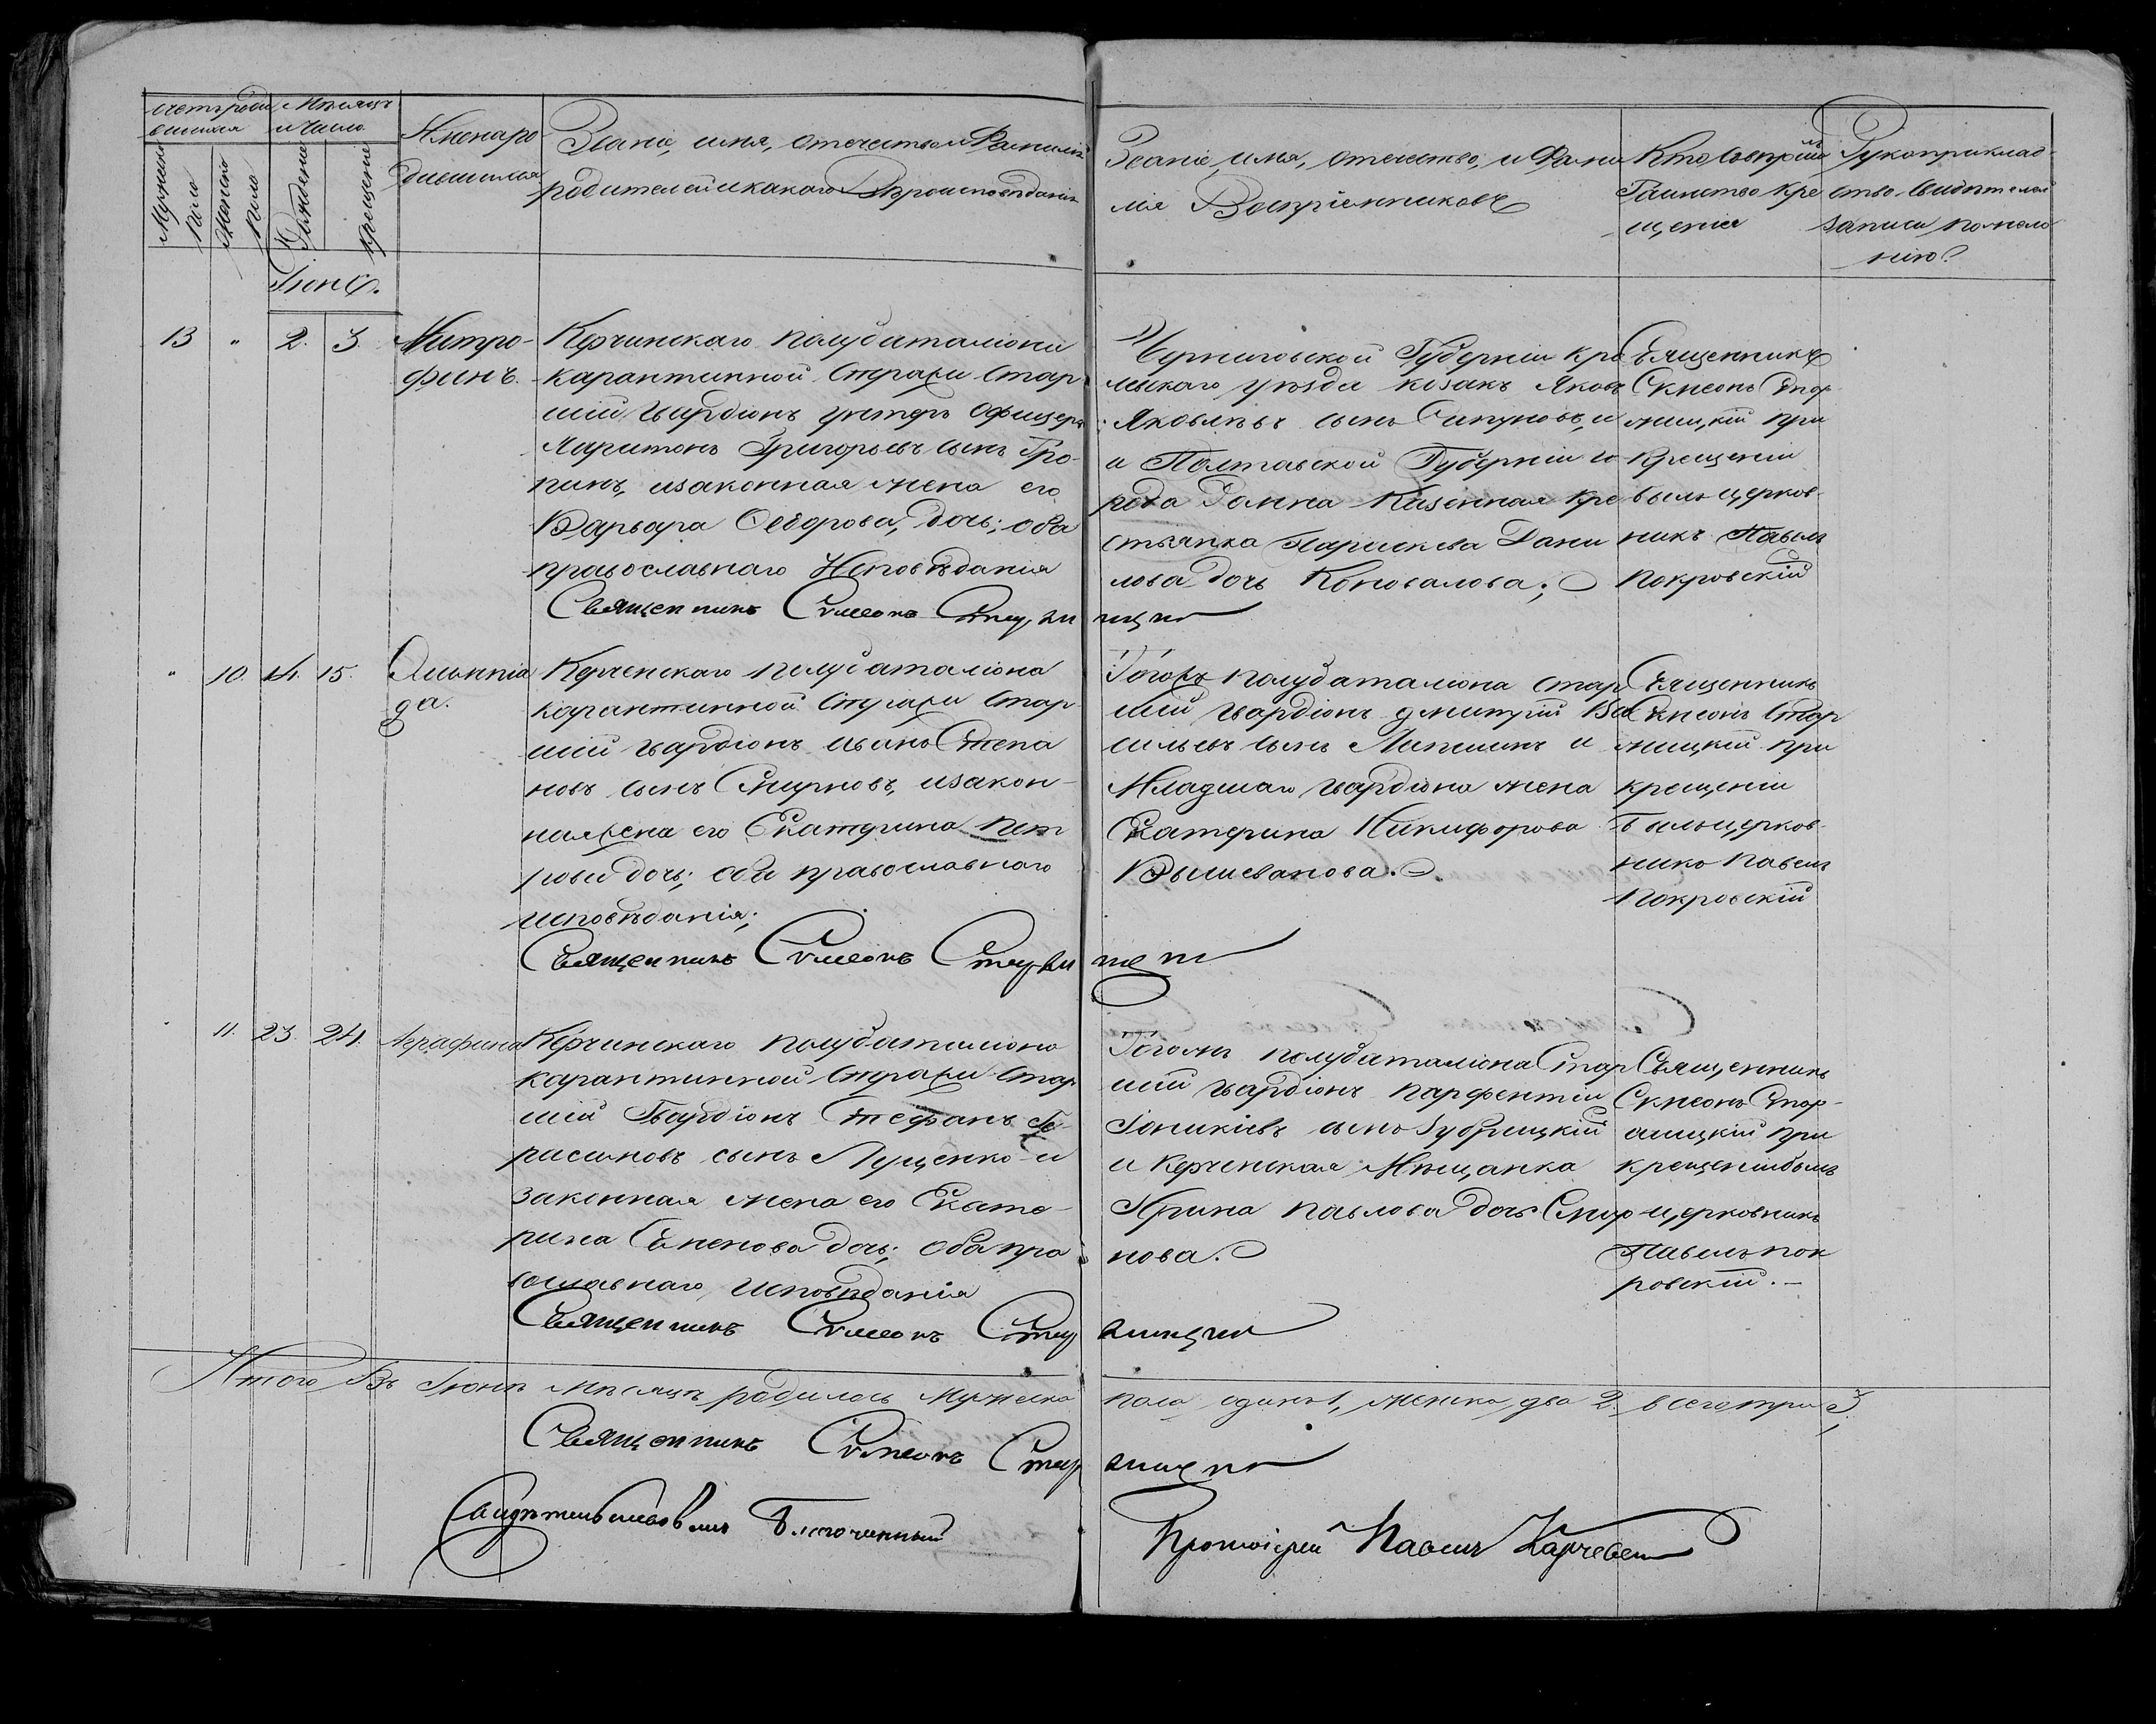 Счетъ роди
вшихся
Мѣсяцъ
и число
Мужеска
пола
Женска
пола
Рожденіе
Крещеніе
Имена ро
дившихся
Званіе, имя, отечество и Фамилія
родителей и какого Вѣроисповѣданія
Званіе, имя, отечество, и Фами
лія Воспріемниковъ
Кто Совершилъ
Таинство Кре
щенія
Рукоприклад
ство свидѣтелей
записи по жела
нію
Іюнь.
13 " 2. 3. Митро-
фанъ.
Керчинскаго полубаталіона
карантинной Стражи Стар
шій гвардіонъ унтеръ Офицеръ
Харитонъ Григорьевъ сынъ Гро-
пинъ, изаконная жена его
Варвара Ѳедорова, дочь; оба
православнаго Исповѣданія
Черниговской Губерніи Кро
левскаго уѣзда козакъ Яковъ
Яковлевъ сынъ Сипуновъ, и
и Полтавской Губерніи го
рода Ромна Казенная кре
стьянка Параскева Дани
лова дочь Коновалова;
Священникъ
Симеонъ Стар
жицкій при
Крещеніи
былъ церков
никъ Павелъ
Покровскій
Священникъ Симеонъ
" 10. 14. 15. Олимпіа
да.
Керченскаго полубаталіона
карантинной Стражи Стар
шій гвардіонъ иванъ Степа
новъ сынъ Смирновъ, изакон-
ная жена его Екатерина Пет
рова дочь; оба православнаго
исповѣданія;
Тогожъ полубаталіона стар
шій гвардіонъ дмитрій Ва
сильевъ сынъ и
Младшаго гвардіона жена
Екатерина Никифорова
Вышеванова.
Священникъ
Симеонъ Стар
жицкій при
крещеніи
былъ церков-
никъ павелъ
Покровскій
Священникъ Симеонъ
" 11. 23. 24. Аграфина
Керчинскаго полубаталіона
карантинной Стражи Стар
шій Гвардіонъ Стефанъ Ге-
расимовъ сынъ Луценко и
законная жена его Екате-
рина Семенова дочь; Оба пра
вославнаго исповѣданія
Тогожъ полубаталіона Стар
шій гвардіонъ парфентій
Іоникіевъ сынъ
и Керченская Мѣщанка
Ирина павлова дочь Смир
нова.
Священникъ
Симеонъ Стар-
жицкій при
крещеніи былъ
церковникъ
Павелъ пок
ровскій.-
Священникъ Симеонъ
Итого Въ Іюнѣ мѣсяцѣ родилось мужеска пола одинъ 1, женска два 2. всего три 3,
Священникъ Симеонъ
Протоіерей Павелъ